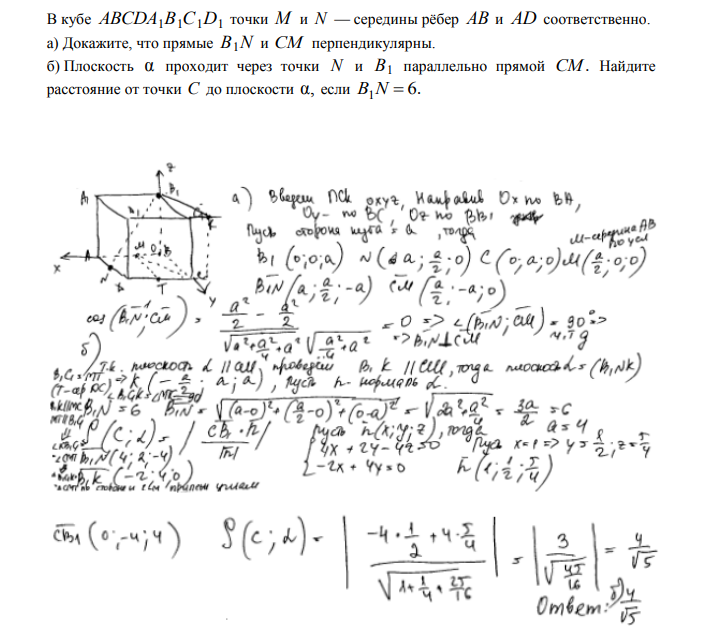 В кубе ABCDA₁B₁C₁D₁ точки M и N — середины рёбер AB и AD соответственно.
а) Докажите, что прямые B₁N и CM перпендикулярны.
б) Плоскость α проходит через точки N и B₁ параллельно прямой CM. Найдите
расстояние от точки C до плоскости α, если B₁N = 6.
а) Введем ПСК oxyz, Направив Ox по BA,
Oy – по BC, Oz по BB₁
Пусть сторона куба = a, тогда
M-середина AB по усл
B₁(0;0;a) N(a; a/2; 0) C(0;a;0) M(a/2; 0; 0)
B₁N(a; a/2; -a) CM(a/2; -a; 0)
cos(B₁N; CM) = (a²/2 - a²/2) / (√(a²+a²/4+a²) √(a²/4+a²)) = 0 => ∠(B₁N; CM) = 90° =>
=> B₁N ⊥ CM ч.т.д
б) Т.к. плоскость α || CM, проведем B₁K || CM, тогда плоскость α = (B₁NK)
K(-a/2; a; a), пусть n - нормаль α.
B₁N = 6 B₁N = √((a-0)²+(a/2-0)²+(0-a)²) = √(2a²+a²/4) = 3a/2 = 6
a = 4
ρ(C; α) = |CB₁·n| / |n|
пусть n(x;y;z), тогда
B₁N(4; 2; -4)
4x + 2y - 4z = 0
Пусть x=1 => y = 1/2; z = 5/4
B₁K(-2; 4; 0)
-2x + 4y = 0
n(1; 1/2; 5/4)
CB₁(0; -4; 4) ρ(C; α) = |(-4·1/2 + 4·5/4) / √(1+1/4+25/16)| = |3 / √(45/16)| = 4/√5
Ответ: б) 4/√5